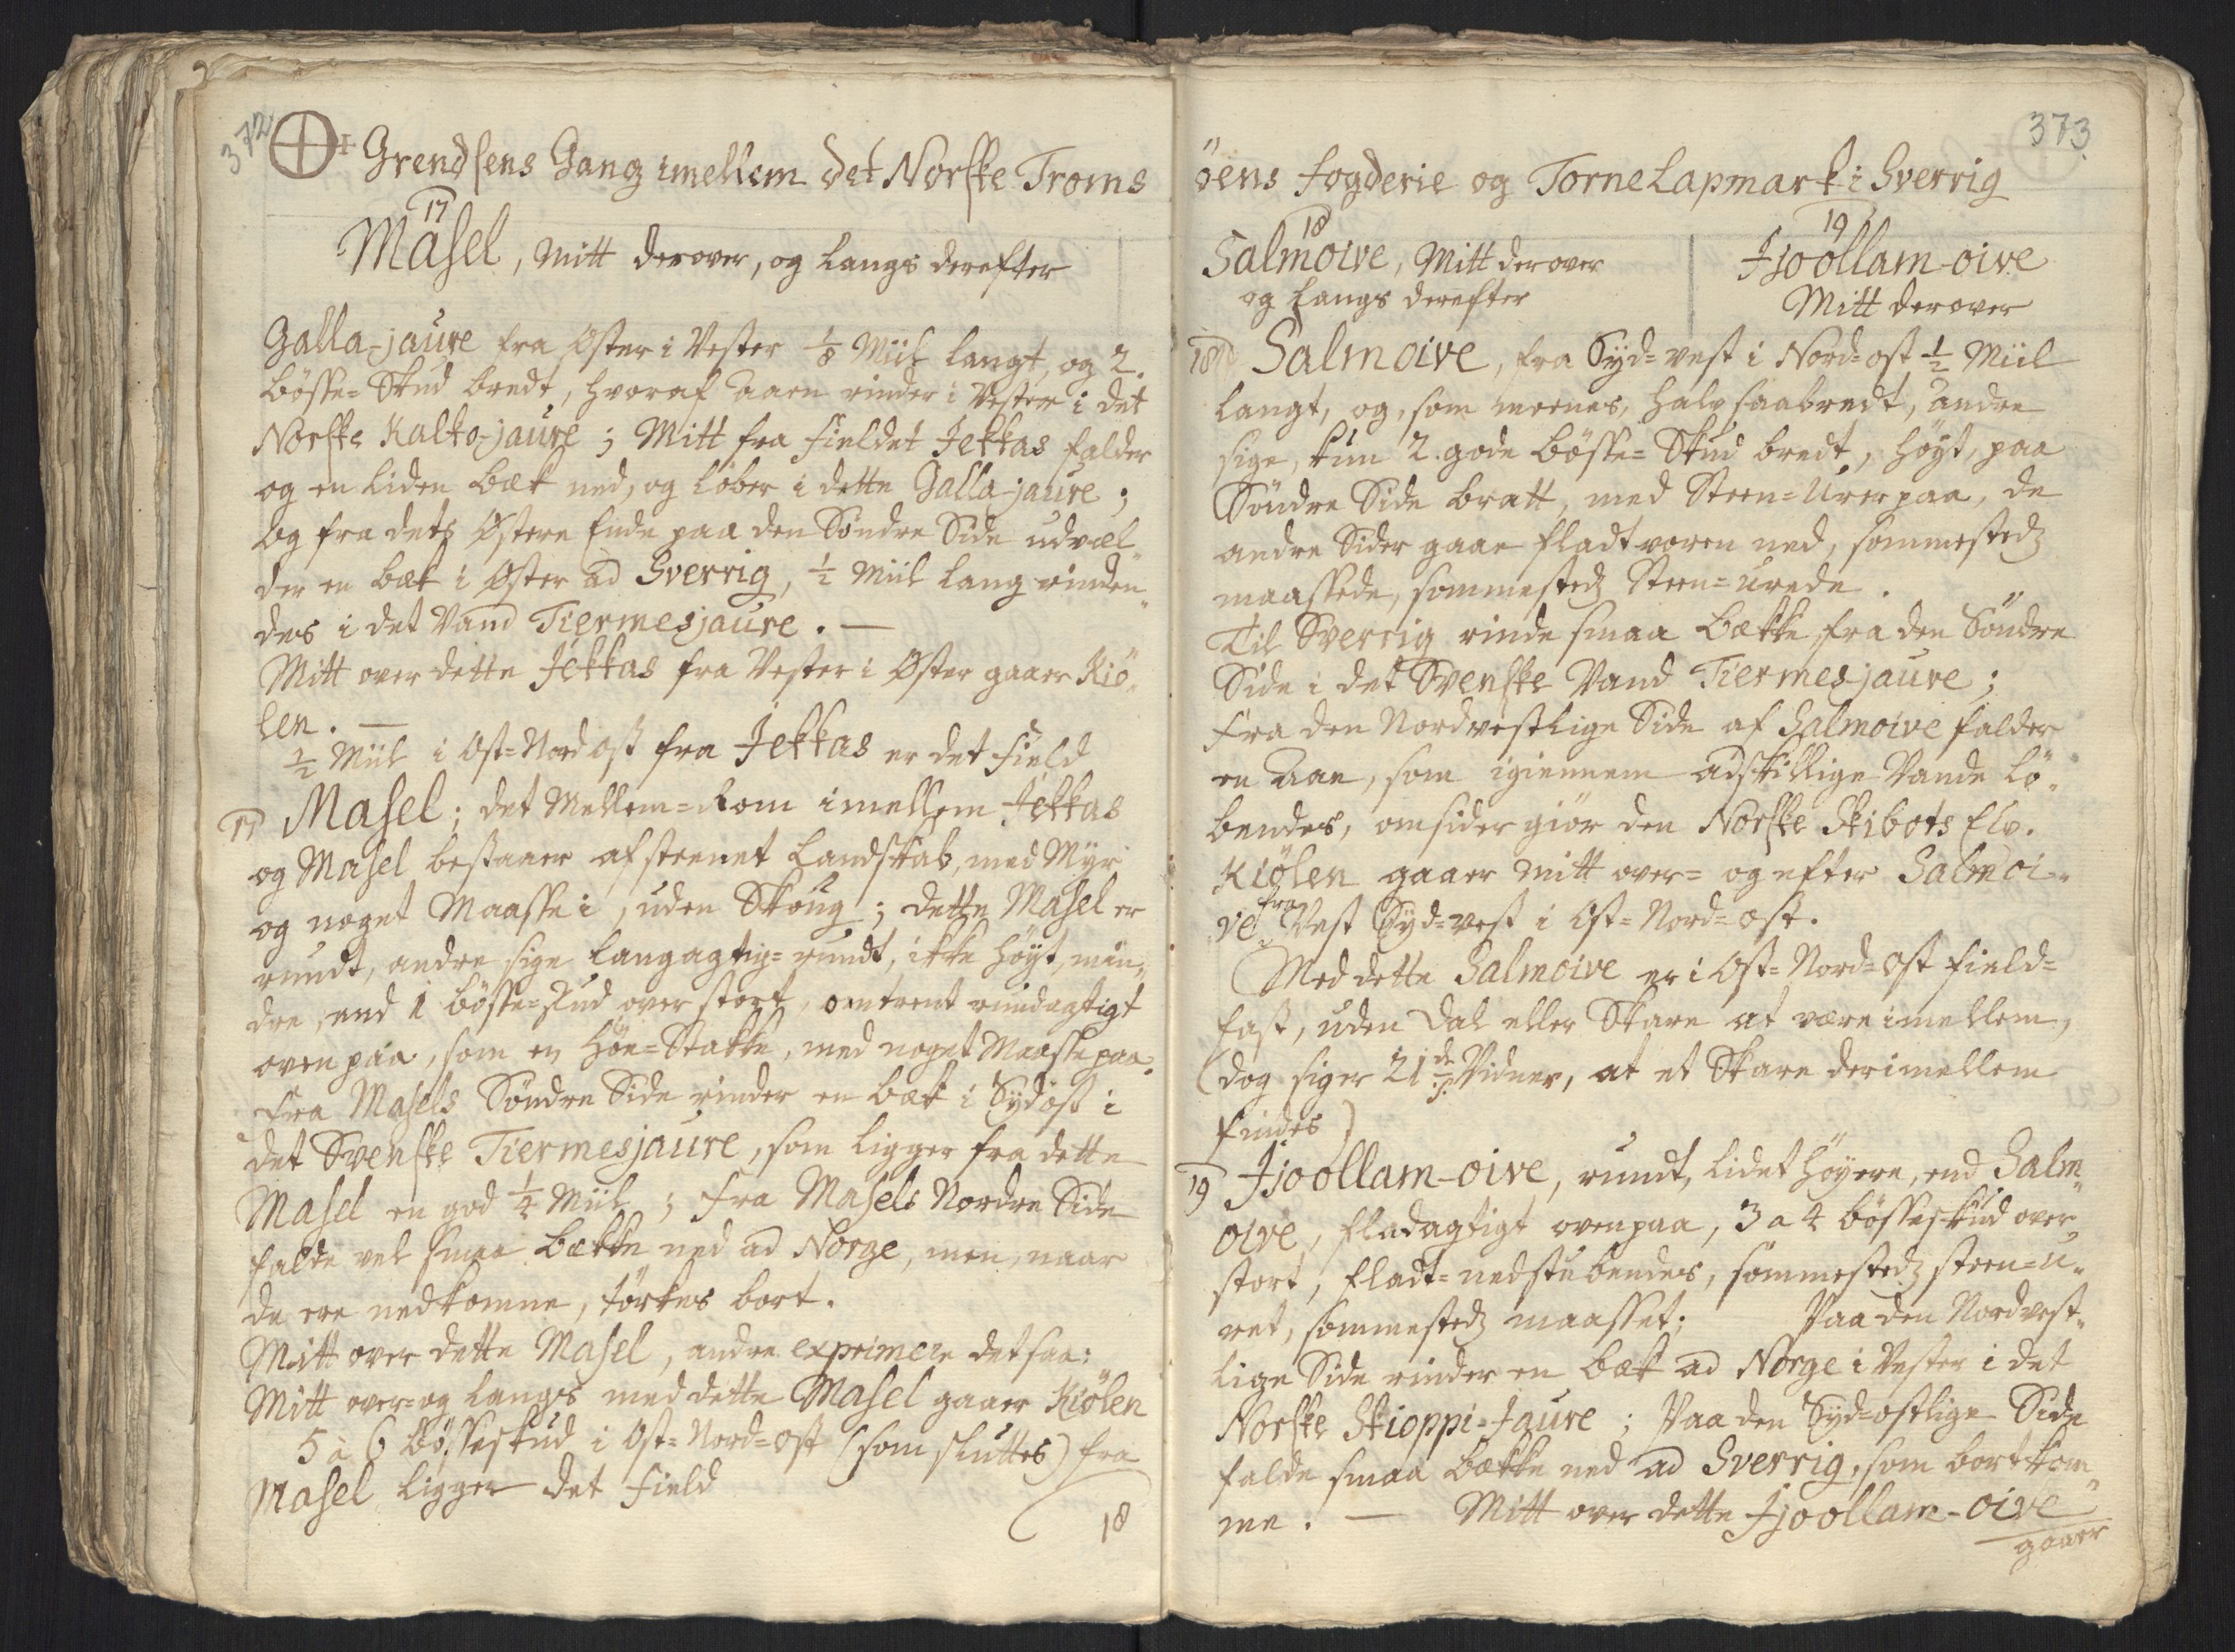 372
⊕ 1 Grendsens Gang imellem det Norske Troms
17
Masel, mitt derover, og langs derefter
Galla-jaure fra Oster i Vester 1/8 Miil langt, og 2.
bösse-Skud bredt, hvoraf Aaen rinder i Vester i det
Norske Kalko-jaure; Mitt fra Fieldet Jekkas falder
og en liden bæk ned, og löber i dette Galla-jaure;
og fra dets Østere Ende paa den Söndre Side udvel-
der en bæk i Øster ad Sverrig, 1/2 Miil lang rinden-
des i det Vand Tiermesjaure. —
Mitt over dette Jekkas fra Vester i Øster gaaer Kiö-
len. —
1/2 Miil i Ost-Nordost fra Jekkas er det Field
17 Masel; det Mellem-Rom imellem Jekkas
og Masel bestaaer af steenet Landskab, med Myr
og noget Maasse i, uden Skoug; dette Masel er
rundt, andre sige langagtig-rundt, ikke höyt, min-
dre, end 1 bösse-Skud over stort, omtrent rundagtigt
oven paa, som en Höe-Stakke, med noget Maasse paa.
Fra Masels Söndre Side rinder en bæk i Sydost i
det Svenske Tiermesjaure, som ligger fra dette
Masel en god 1/4 Miil; Fra Masels Nordre Side
falde vel smaa bække ned ad Norge, men, naar
de ere nedkomne, törkes bort.
Mitt over dette Masel, andre exprimere det saa:
Mitt over- og langs med dette Masel gaaer Kiölen
5 à 6 bösseskud i Ost-Nord-ost (som sluttes) fra
Masel ligger det Field
18
373.
öens Fogderie og Torne Lapmark i Sverrig
18
Salmoive, Mitt derover
og langs derefter
19
Jjoollam-oive
Mitt derover
18 Salmoive, fra Syd-vest i Nord-ost 1/2 Miil
langt, og, som meenes, halv saa bredt, andre
sige, kun 2. gode bösse-Skud bredt, höyt, paa
Söndre Side bratt, med Steen-Urer paa, de
andre Sider gaae fladt voren ned, sommesteds
maassede, sommesteds Steen-urede.
Til Sverrig rinde smaa bække fra den Söndre
Side i det Svenske Vand Tiermesjaure;
Fra den Nordvestlige Side af Salmoive falder
en Aae, som igiennem adskillige Vande lö-
bendes, omsider giör den Norske Skibots Elv.
Kiölen gaaer mitt over- og efter Salmoi-
ve fra Vest Syd-vest i Ost-Nord-ost.
Med dette Salmoive er i Ost-Nord-ost Field-
fast, uden dal eller Skare at være imellem,
(dog siger 21de Vidner, at et Skare derimellem
findes)
19 Jjoollam-oive, rundt, lidet höyere, end Salm-
oive, fladagtigt oven paa, 3 a 4 bösseskud over
stort, fladt-nedstubendes, sommesteds steen-u-
ret, sommesteds maasset; Paa den Nordvest-
lige Side rinder en bæk ad Norge i Vester i det
Norske Skioppi-Jaure; Paa den Syd-ostlige Side
falde smaa bække ned ad Sverrig, som bortkom-
me. — Mitt over dette Jjoollam-oive
gaaer